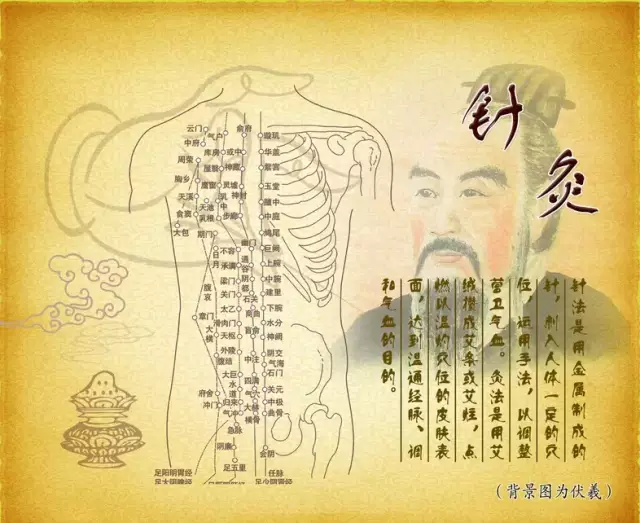 针灸
针法是用金属制成的
针，刺入人体一定的穴
位，运用手法，以调整
营卫气血。灸法是用艾
绒搓成艾条或艾炷，点
燃以温灼穴位的皮肤表
面，达到温通经脉、调
和气血的目的。
（背景图为伏羲）
云门
中府
周荣
胸乡
天溪
食窦
大包
气户
库房
屋翳
膺窗
乳中
天池
乳根
期门
日月
腹哀
章门
大横
腹结
府舍
冲门
俞府
或中
神藏
灵墟
神封
步廊
幽门
通谷
阴都
石关
商曲
肓俞
中注
四满
气穴
大赫
横骨
不容
承满
梁门
关门
太乙
滑肉门
天枢
外陵
大巨
水道
归来
气冲
急脉
阴廉
足五里
璇玑
华盖
紫宫
玉堂
膻中
中庭
鸠尾
巨阙
上脘
中脘
建里
下脘
水分
神阙
阴交
气海
石门
关元
中极
曲骨
会阴
足阳明胃经
足太阴脾经
任脉
足少阴肾经